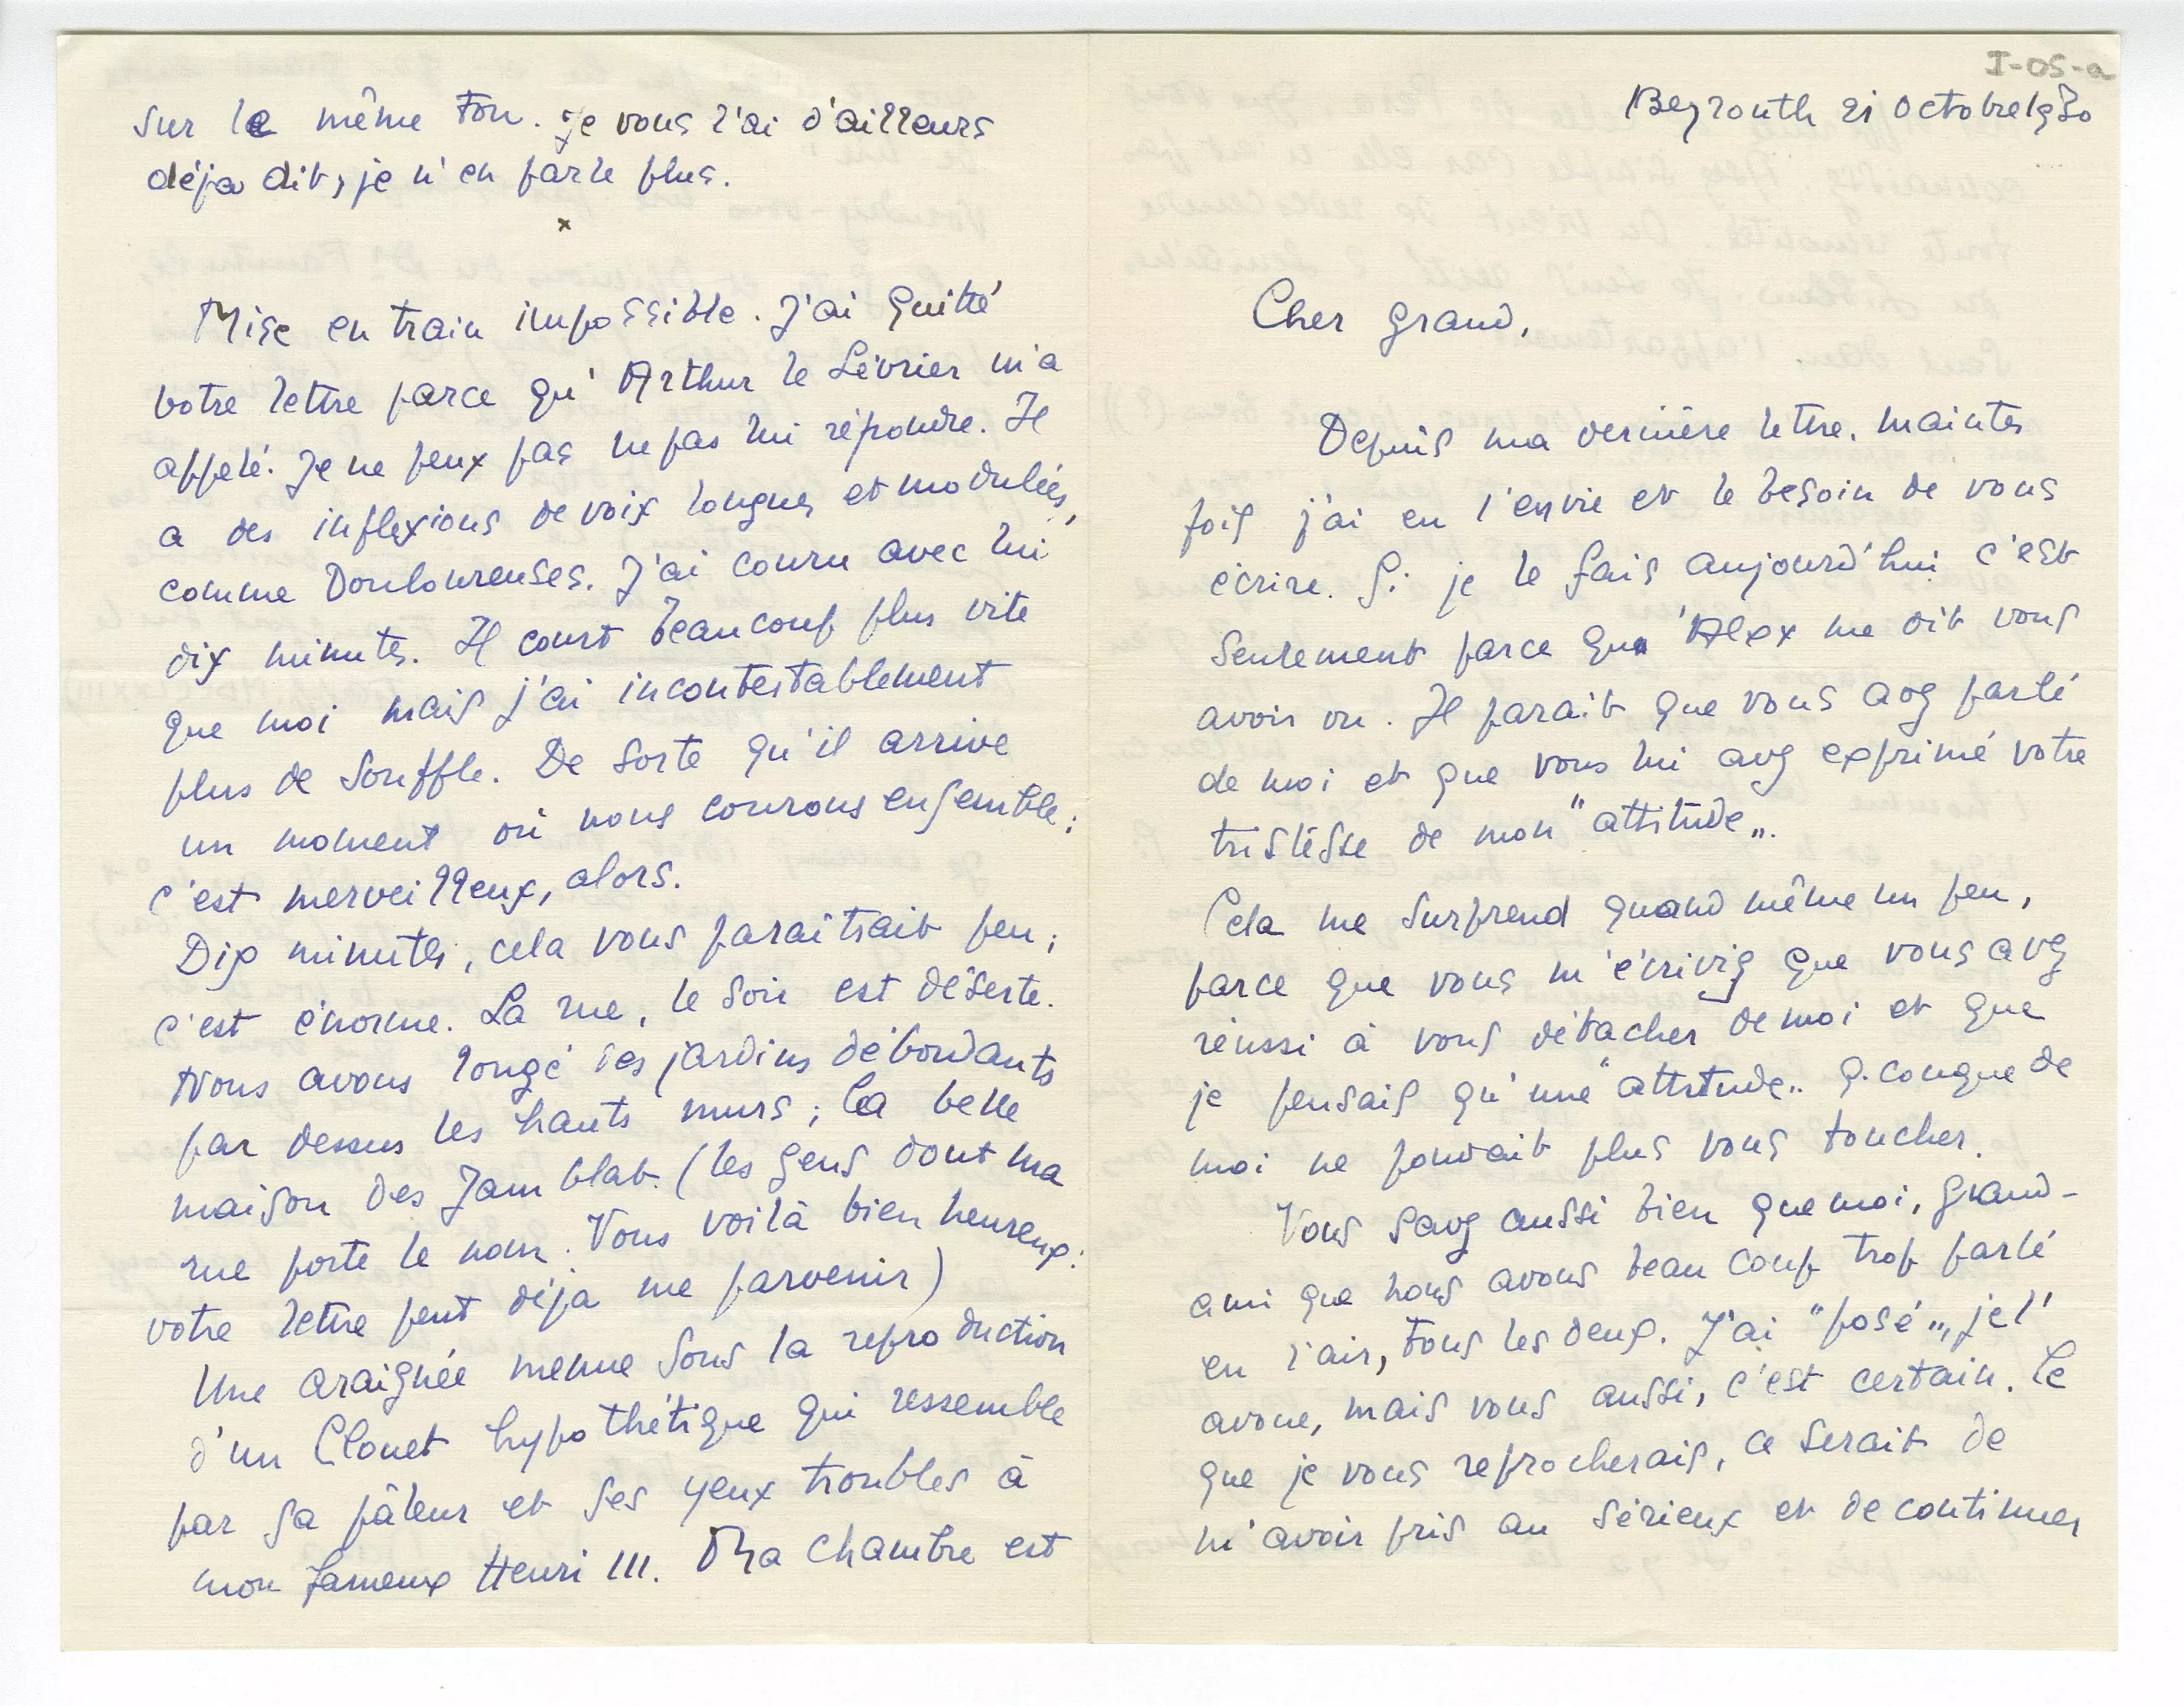 I-05-a
Beyrouth 21 octobre 1930
Cher grand,
Depuis ma dernière lettre, maintes
fois j'ai eu l'envie et le besoin de vous
écrire. Si je le fais aujourd'hui c'est
seulement parce que Alex me dit vous
avoir vu. Il parait que vous avez parlé
de moi et que vous lui avez exprimé votre
tristesse de mon "attitude".
Cela me surprend quand même un peu,
parce que vous m'écriviez que vous avez
réussi à vous détacher de moi et que
je pensais qu'une "attitude" q.conque de
moi ne pouvait plus vous toucher.
Vous savez aussi bien que moi, grand-
ami que nous avons beaucoup trop parlé
en l'air, tous les deux. J'ai "posé", je l'
avoue, mais vous aussi, c'est certain. Ce
que je vous reprocherais, ce serait de
m'avoir pris au sérieux et de continuer
sur le même ton. je vous l'ai d'ailleurs
déja dit, je n'en parle plus.
x
Mise en train impossible. J'ai quitté
votre lettre parce qu'Arthur le Lévrier m'a
appelé. Je ne peux pas ne pas lui répondre. Il
a des inflexions de voix longues et modulées,
comme douloureuses. J'ai couru avec lui
dix minutes. Il court beaucoup plus vite
que moi mais j'ai incontestablement
plus de souffle. De sorte qu'il arrive
un moment où nous courons ensemble;
c'est merveilleux, alors.
Dix minutes, cela vous paraîtrait peu;
c'est énorme. La rue, le soir est déserte.
Nous avons longé des jardins débordants
par dessus les hauts murs; la belle
maison des Jamblat. (les gens dont ma
rue porte le nom. Vous voilà bien heureux:
votre lettre peut déja me parvenir)
Une araignée menue sous la reproduction
d'un Clouet hypothétique qui ressemble
par sa pâleur et ses yeux troubles à
mon fameux Henri III. Ma chambre est